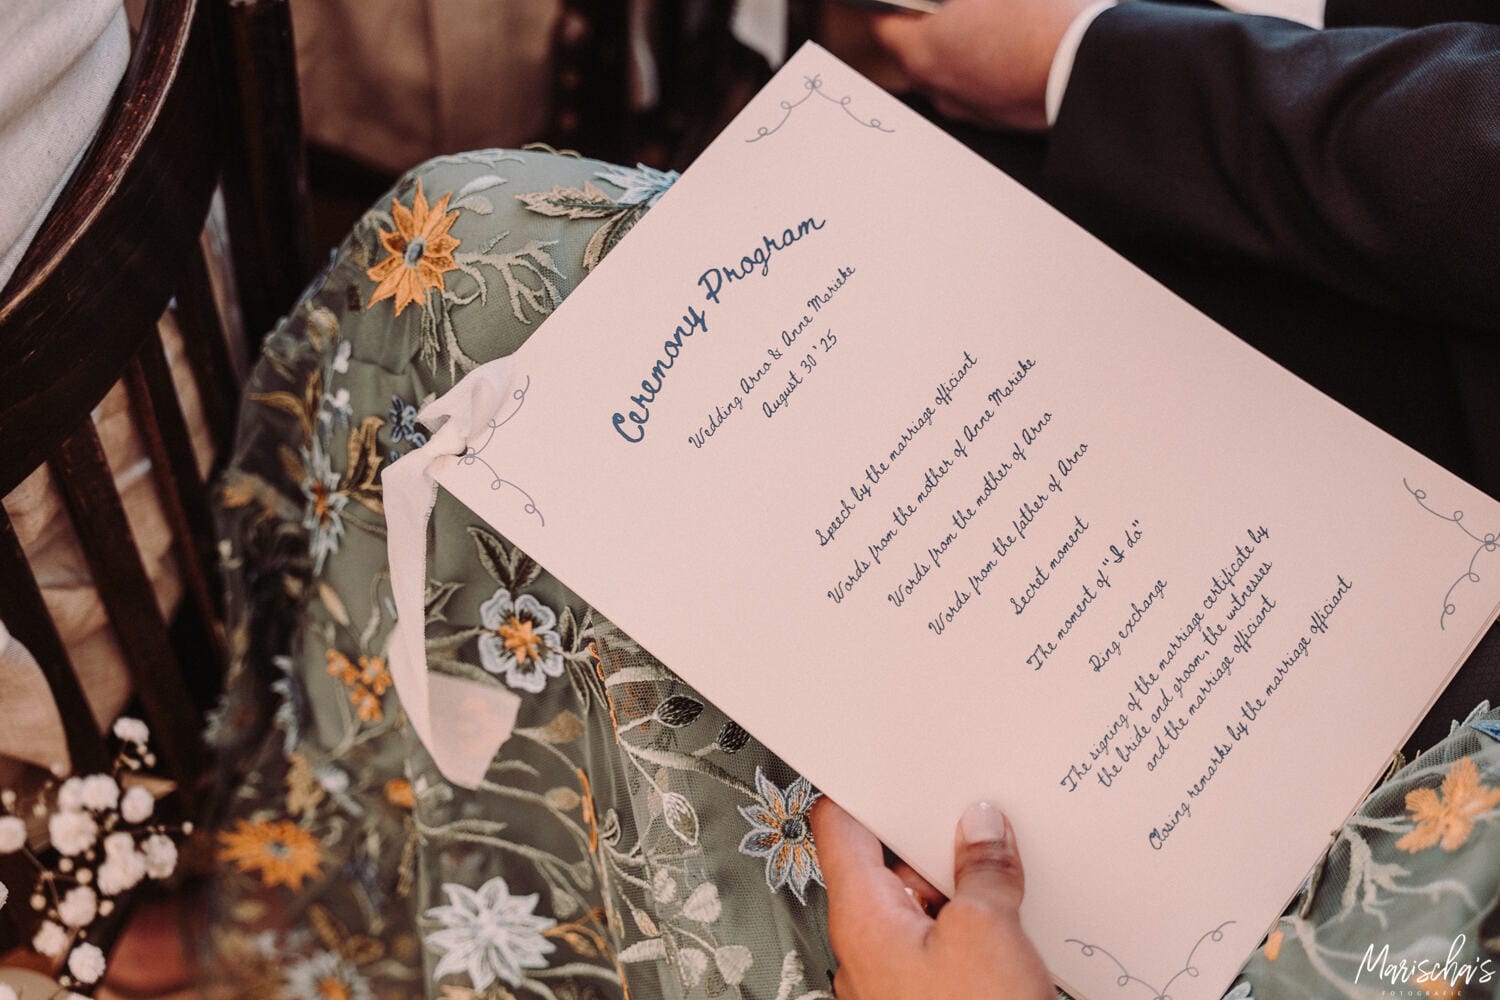 Ceremony Program
Wedding Arno & Anne Marieke
August 30 '25
Speech by the marriage officiant
Words from the mother of Anne Marieke
Words from the mother of Arno
Words from the father of Arno
Secret moment
The moment of "I do"
Ring exchange
The signing of the marriage certificate by
the bride and groom, the witnesses
and the marriage officiant
Closing remarks by the marriage officiant
Marischa's
FOTOGRAFIE